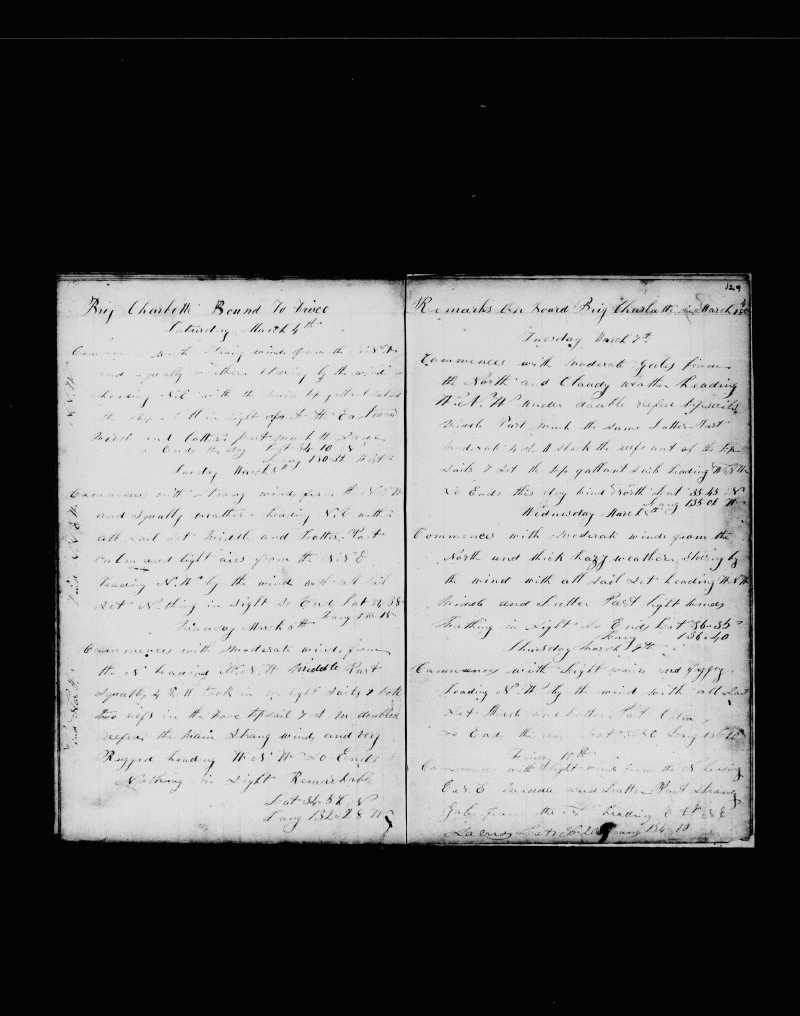 Brig Charlotte Bound To
Saturday March 4th
with Strong winds from the
and squally weather by the wind
heading N E with the main top gallant
the ship in sight
Middle and latter part much the same
Ends this day Lat 34-10 N
Long 130-32 West
Sunday March 5th
Commences with Strong winds from the
and Squally weather heading N E with
all sail set Middle and Latter Part
calm and light airs from the N N E
heading N. W by the wind with all sail
set Nothing in Sight So Ends Lat 34-38
Long 130-15
Monday March 6th
Commences with moderate winds from
the N heading W. N. W Middle Part
Squally 4 P M took in light sails & took
two reefs in the Fore topsail 7 P. M double
reefed the main Strong winds and very
Rugged heading W N W So Ends
Nothing in Sight Remarkable
Lat 34-52 N
Long 132-28 W
129
Remarks On Board Brig Charlotte March
Tuesday March 7th
Commences with moderate gales from
the North and Cloudy weather heading
W. N. W under double reefed topsails
Middle Part much the same Latter Part
moderate 4 A. M shook the reefs out of the top
sails & set the top gallant sails heading W N W
So Ends this day wind North Lat 35-45 N
Long 135-06 W
Wednesday March 8th
Commences with moderate winds from the
North and thick hazy weather Steering by
the wind with all sail set heading W N W
Middle and Latter Part light winds
Nothing in Sight So Ends Lat 36-35
Long 136-40
Thursday March 9th
Commences with light winds and foggy
heading N. W by the wind with all Sail
Set Middle and Latter Part Calm
So Ends this day Lat Long
Friday 10th
Commences with light winds from the N heading
Middle and Latter Part Strong
Gales from the heading
So ends Lat Long 134 10